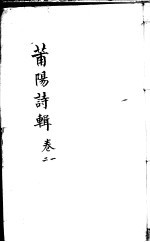 莆陽詩輯 卷一二